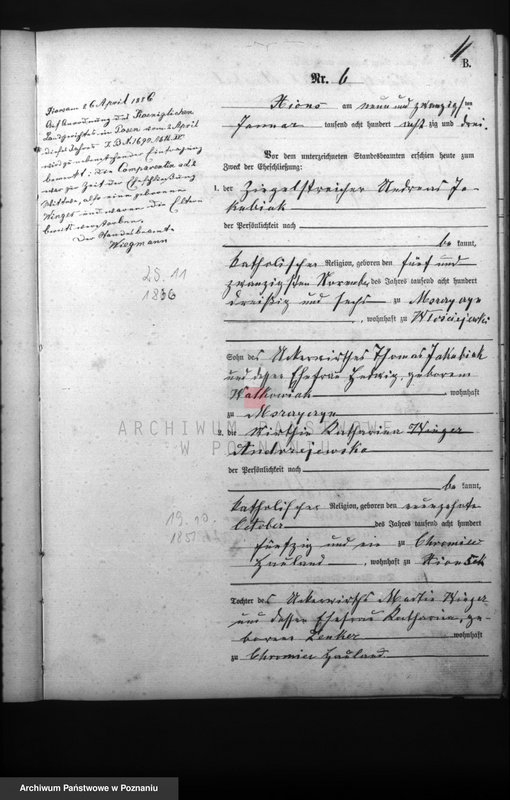 11
B.
Nr. 6
Xions am neun und zwanzigsten
Januar tausend acht hundert achtzig und drei.
Vor dem unterzeichneten Standesbeamten erschien heute zum
Zweck der Eheschließung:
1. der Ziegelstreicher Andreas Ja-
kubiak
der Persönlichkeit nach
be kannt,
katholischer Religion, geboren den fünf und
zwanzigsten November des Jahres tausend acht hundert
dreißig und sechs zu
, wohnhaft zu Włościejewki
Sohn des Ackerwirthes Thomas Jakubiak
und dessen Ehefrau Hedwig, geborenen
Walkowiak wohnhaft
zu
2. die Wirthin Katharina Winger
der Persönlichkeit nach
be kannt,
katholischer Religion, geboren den neunzehnten
October des Jahres tausend acht hundert
fünfzig und ein zu
Hauland, wohnhaft zu Xions
Tochter des Ackerwirths Martin Winger
und dessen Ehefrau Katharina, ge-
borenen wohnhaft
zu Hauland
26 April 1886
Auf Anordnung des Koeniglichen
Landgerichts in Posen vom 2 April
dieses Jahres
wird nebenstehender Eintragung
bemerkt: Die
war zur Zeit der Eheschließung
Wittwe, geborene
Winger und waren die Eltern
bereits verstorben.
Der Standesbeamte
Wiegmann
25.11
1836
19.10.
1851
ARCHIWUM PAŃSTWOWE
W POZNANIU
Archiwum Państwowe w Poznaniu